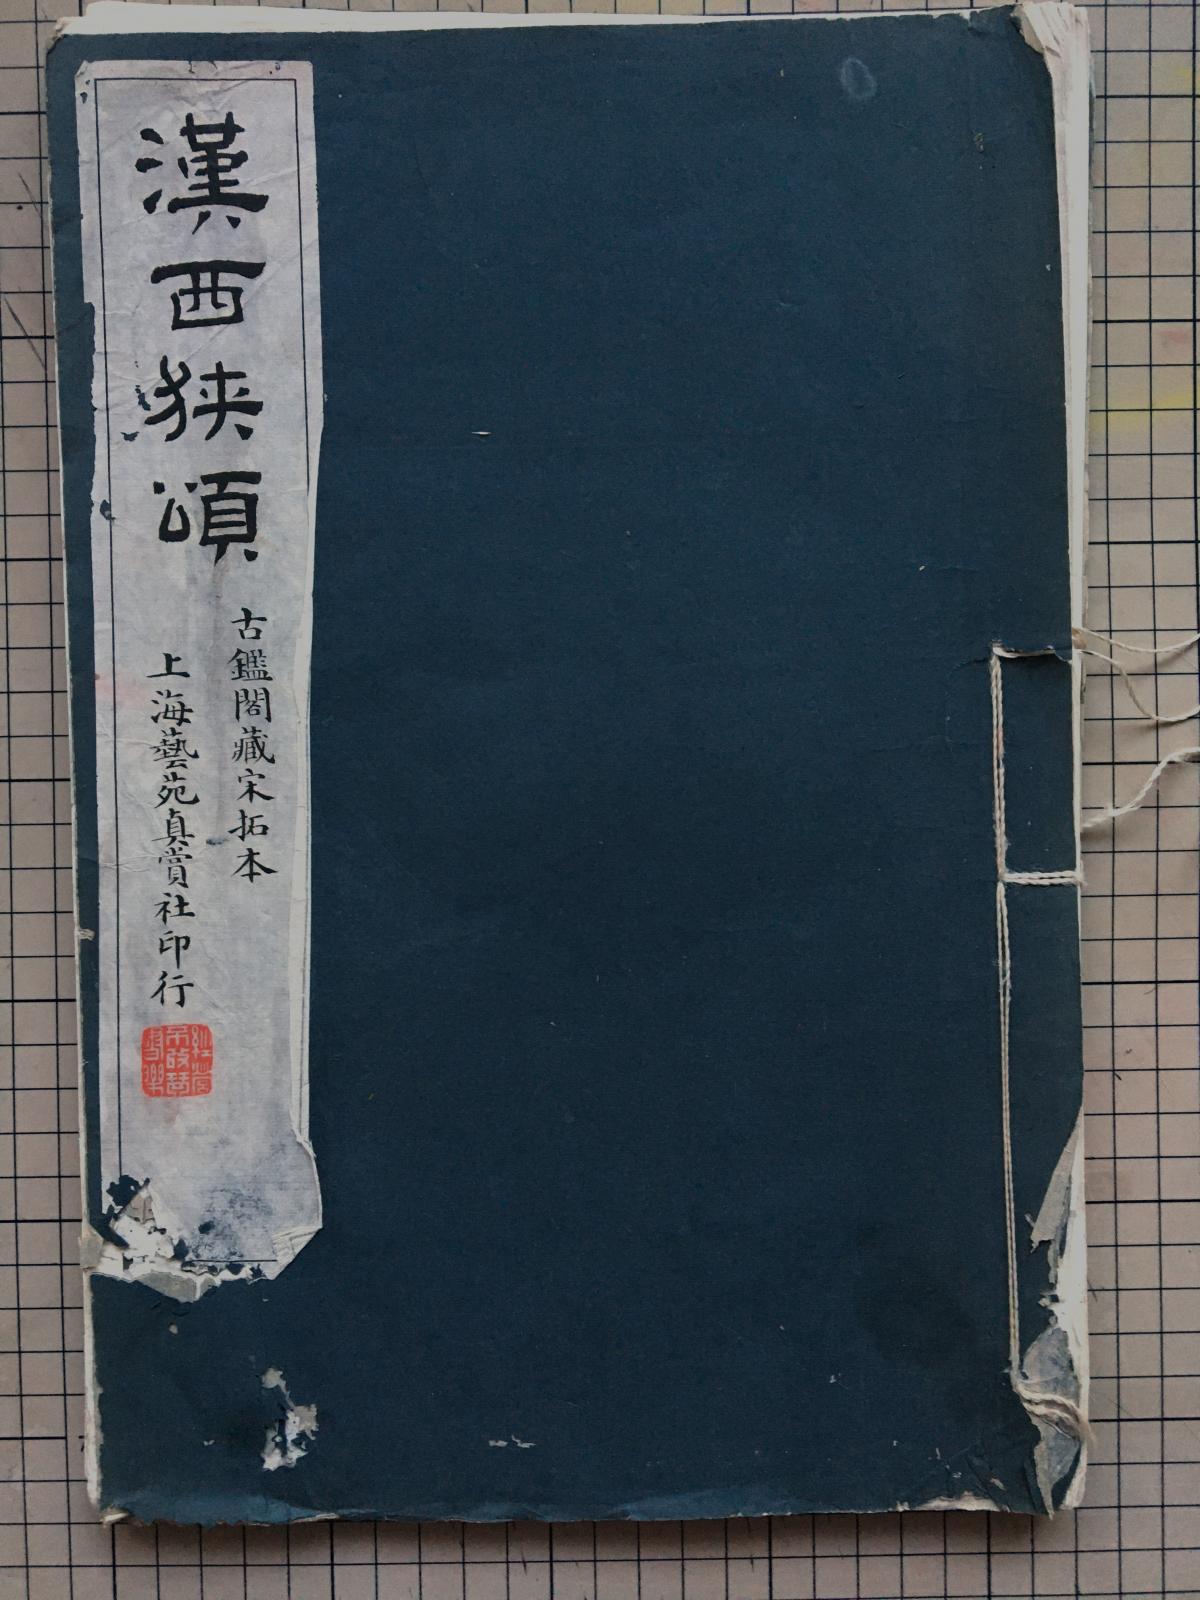 漢西狹頌
古鑑閣藏宋拓本
上海藝苑真賞社印行